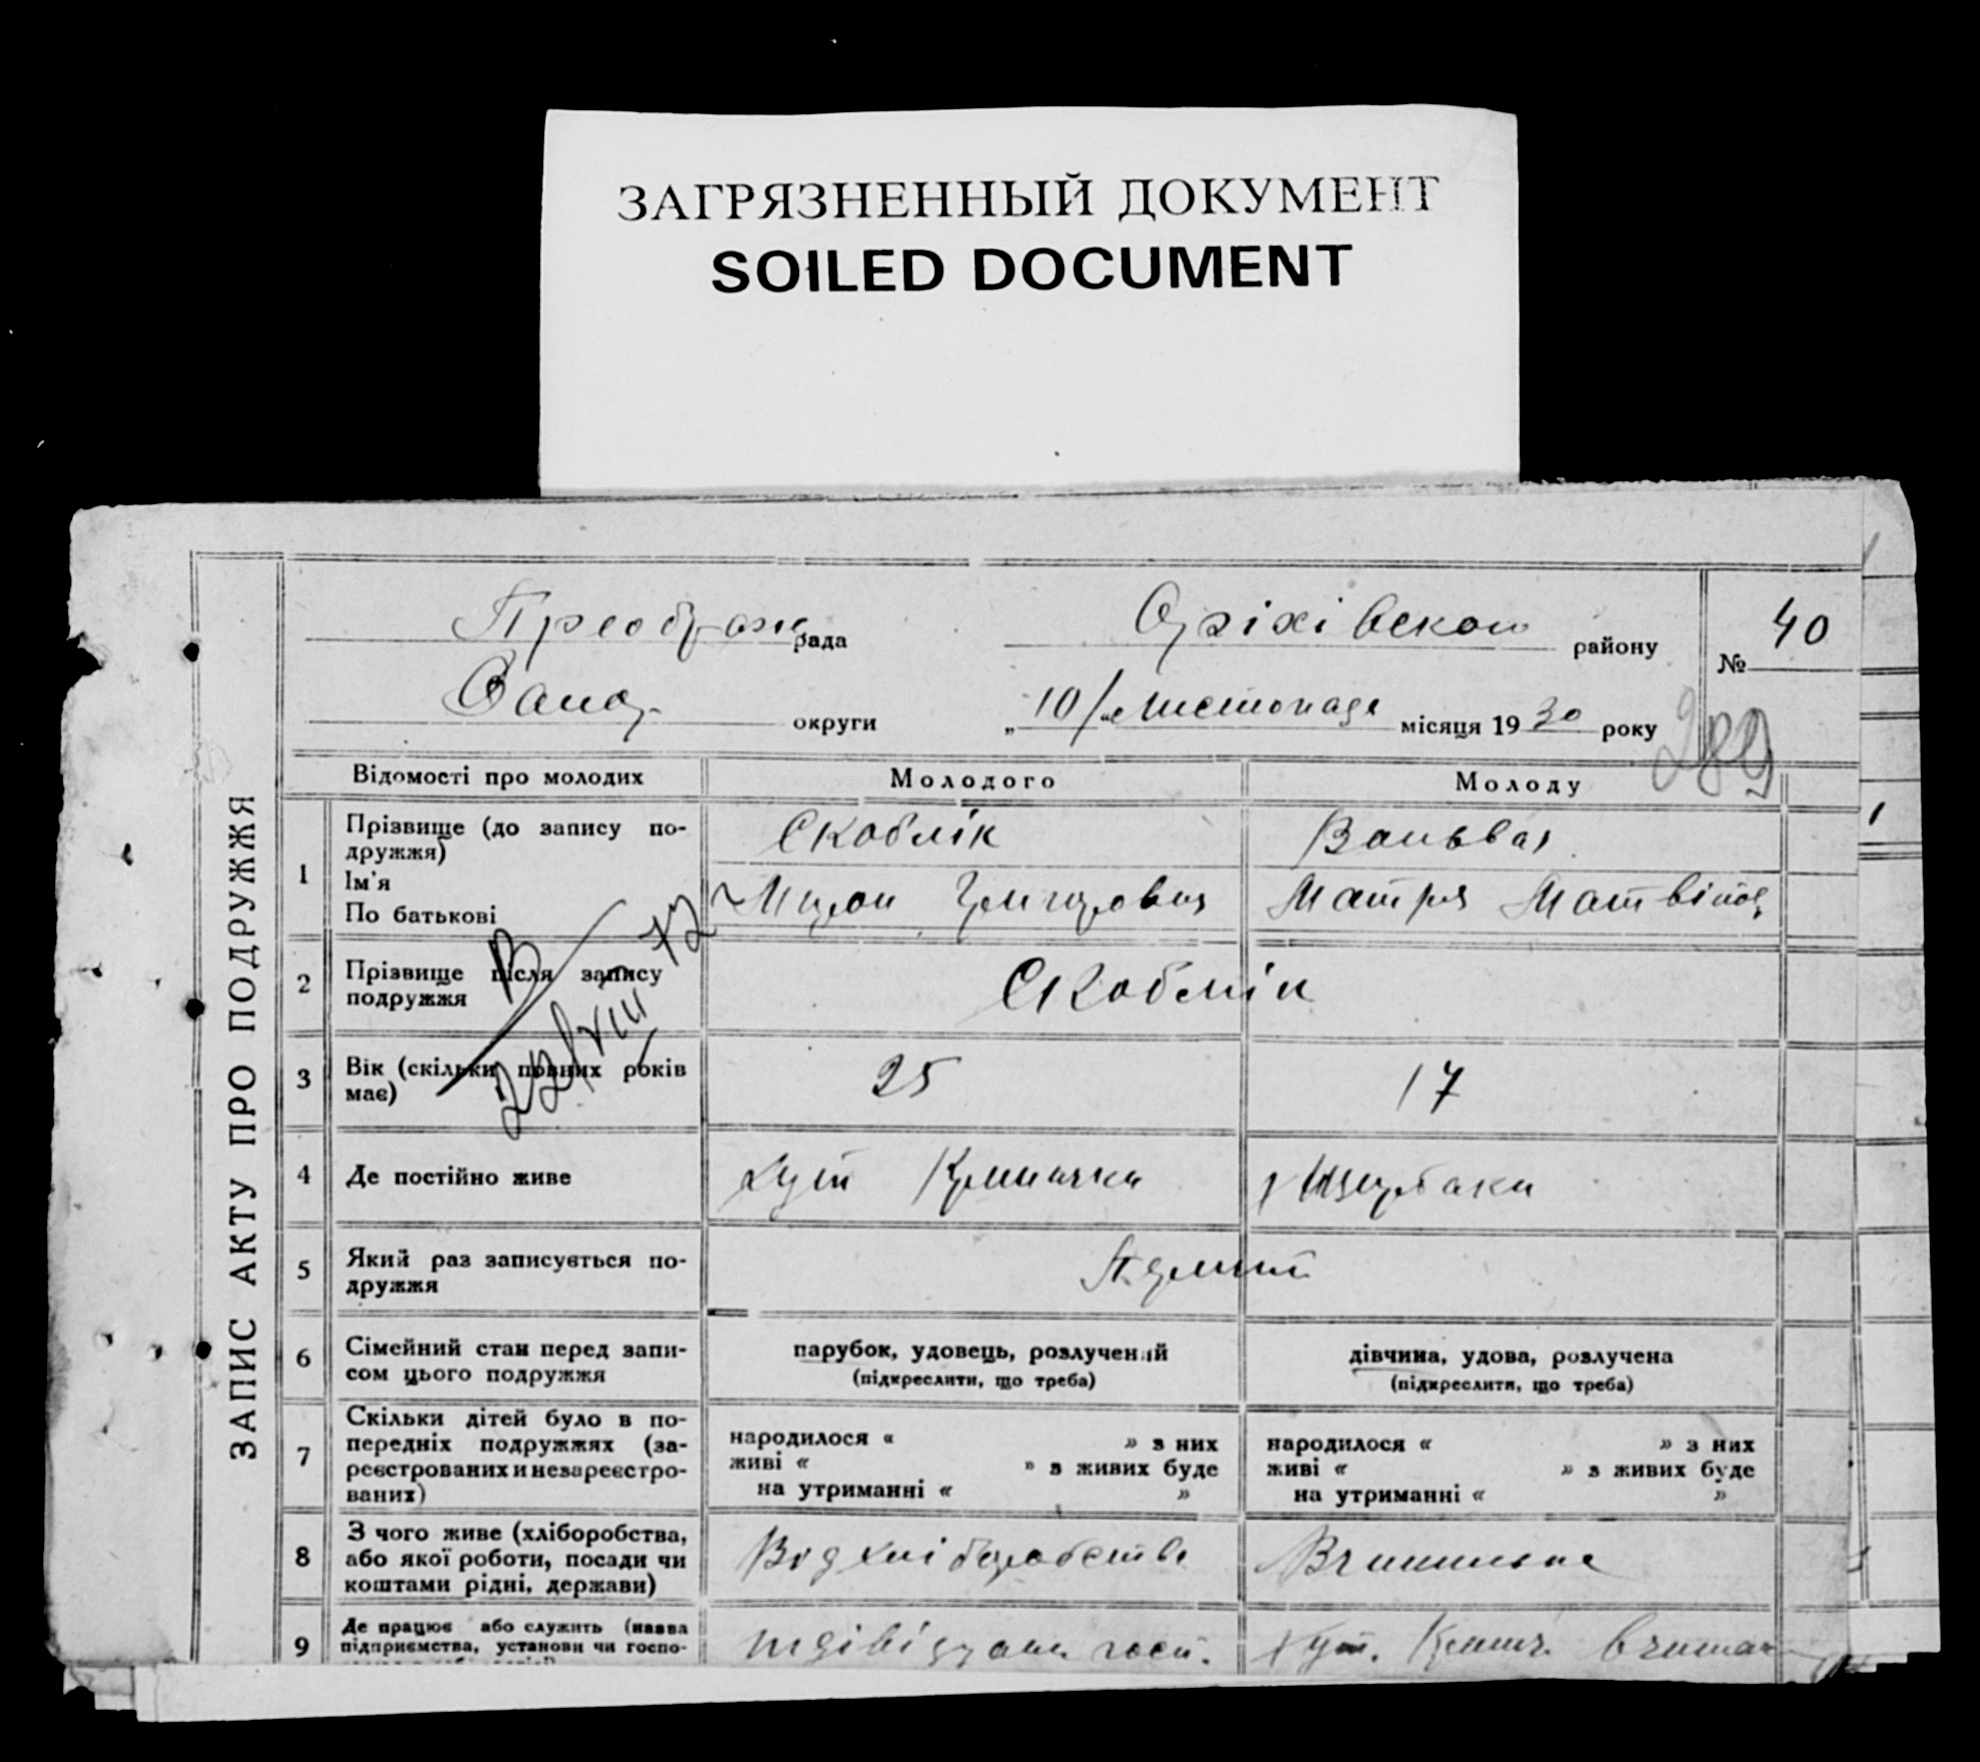 ЗАГРЯЗНЕННЫЙ ДОКУМЕНТ
SOILED DOCUMENT
ЗАПИС АКТУ ПРО ПОДРУЖЖЯ
Преображ рада Оріхівськом району № 40
Запор округи „10/" листопада місяця 1930 року
289
Відомості про молодих Молодого Молоду
1 Прізвище (до запису по-
дружжя) Скоблік
Ім'я
По батькові Мирон Григорович Мотря Матвіівн
2 Прізвище після запису
подружжя Скоблік
В
22/VIII 72
3 Вік (скільки повних років
має) 25 17
4 Де постійно живе хут Кринички х Щербаки
5 Який раз записується по-
дружжя Первий
6 Сімейний стан перед запи-
сом цього подружжя парубок, удовець, розлучений дівчина, удова, розлучена
(підкреслити, що треба) (підкреслити, що треба)
7 Скільки дітей було в по-
передніх подружжях (за-
реєстрованих и незареєстро-
ваних) народилося « » з них народилося « » з них
живі « » з живих буде живі « » з живих буде
на утриманні « » на утриманні « »
8 З чого живе (хліборобства,
або якої роботи, посади чи
коштами рідні, держави) Від хліборобства Вчителька
9 Де працює або служить (назва
підприємства, установи чи госпо-
індівідуальн госп. хут. Кринич.